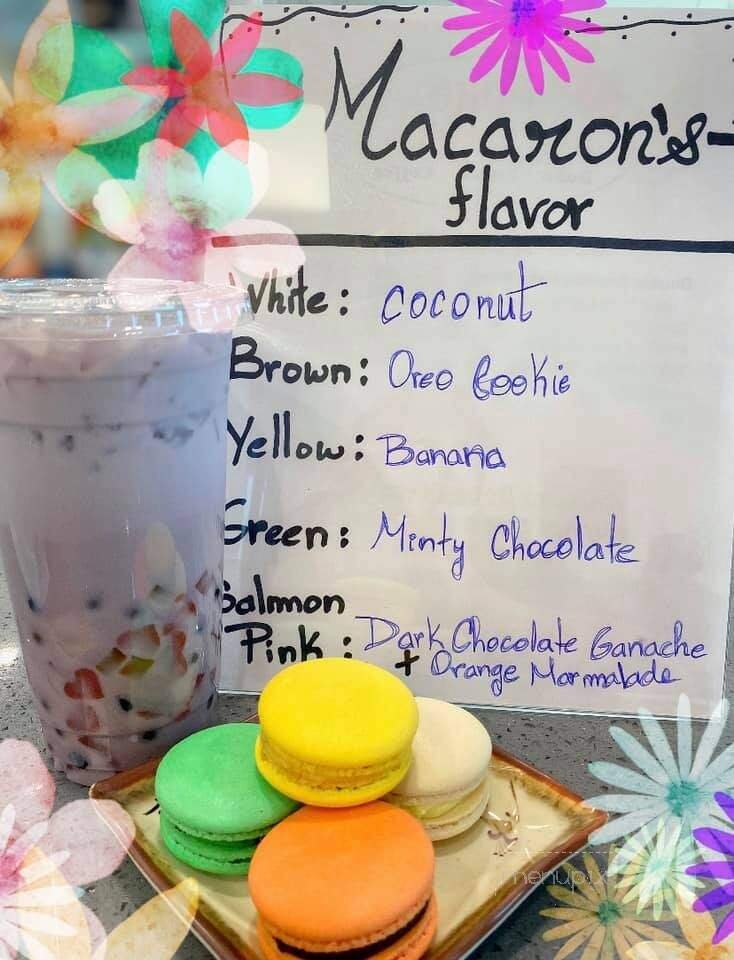 Macaron's
flavor
White: coconut
Brown: Oreo Cookie
Yellow: Banana
Green: Minty Chocolate
Salmon
Pink: Dark Chocolate Ganache
+ Orange Marmalade
menupix